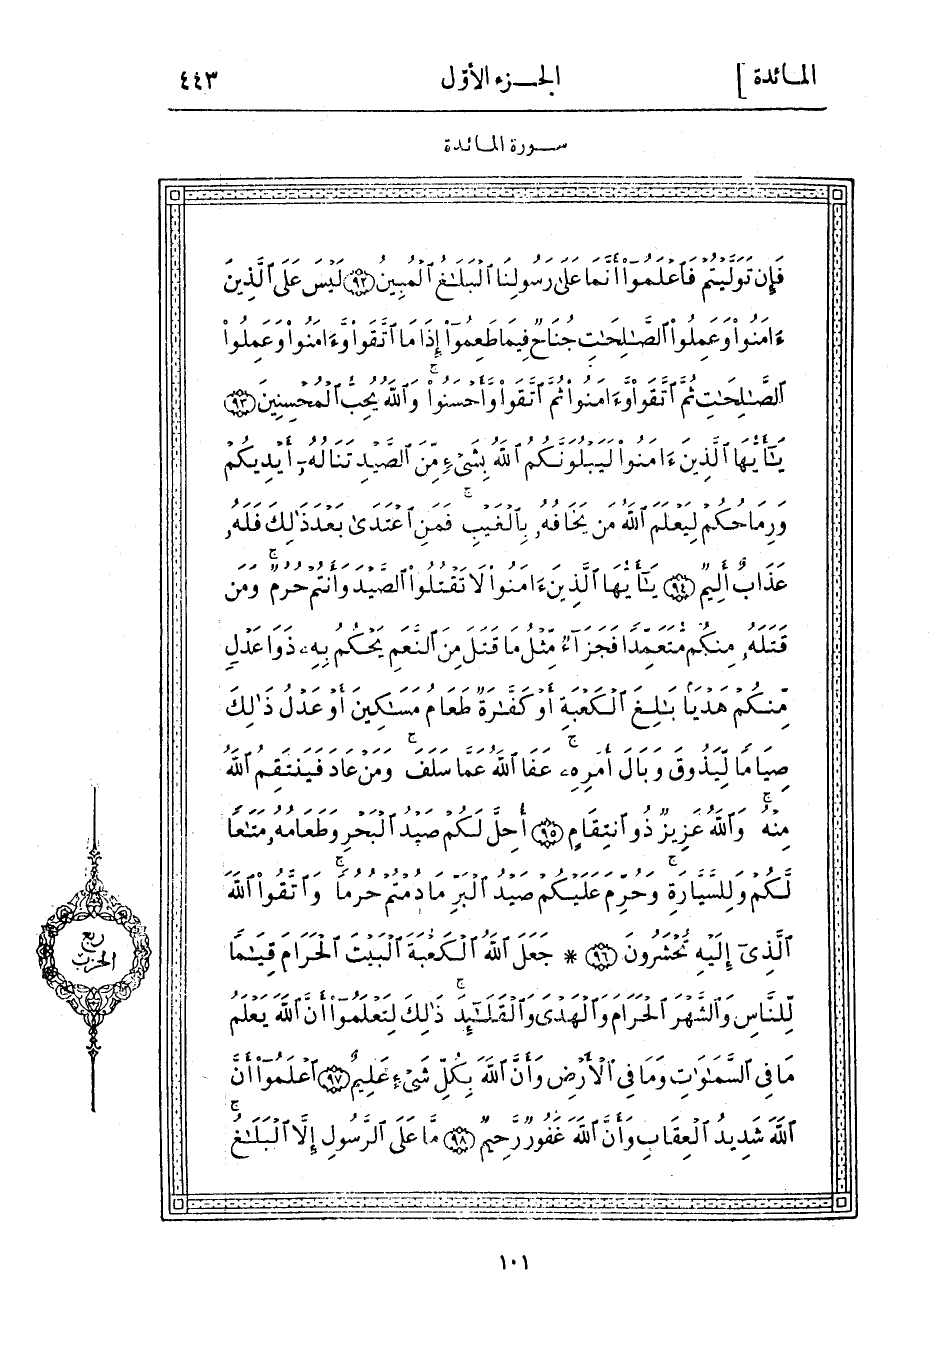 المائدة ]
الجزء الأول
٤٤٣
سورة المائدة
فَإِن تَوَلَّيْتُمْ فَٱعْلَمُوٓا۟ أَنَّمَا عَلَىٰ رَسُولِنَا ٱلْبَلَـٰغُ ٱلْمُبِينُ ﴿٩٢﴾ لَيْسَ عَلَى ٱلَّذِينَ
ءَامَنُوا۟ وَعَمِلُوا۟ ٱلصَّـٰلِحَـٰتِ جُنَاحٌ فِيمَا طَعِمُوٓا۟ إِذَا مَا ٱتَّقَوا۟ وَّءَامَنُوا۟ وَعَمِلُوا۟
ٱلصَّـٰلِحَـٰتِ ثُمَّ ٱتَّقَوا۟ وَّءَامَنُوا۟ ثُمَّ ٱتَّقَوا۟ وَّأَحْسَنُوا۟ ۚ وَٱللَّهُ يُحِبُّ ٱلْمُحْسِنِينَ ﴿٩٣﴾
يَـٰٓأَيُّهَا ٱلَّذِينَ ءَامَنُوا۟ لَيَبْلُوَنَّكُمُ ٱللَّهُ بِشَىْءٍ مِّنَ ٱلصَّيْدِ تَنَالُهُۥٓ أَيْدِيكُمْ
وَرِمَاحُكُمْ لِيَعْلَمَ ٱللَّهُ مَن يَخَافُهُۥ بِٱلْغَيْبِ ۚ فَمَنِ ٱعْتَدَىٰ بَعْدَ ذَٰلِكَ فَلَهُۥ
عَذَابٌ أَلِيمٌ ﴿٩٤﴾ يَـٰٓأَيُّهَا ٱلَّذِينَ ءَامَنُوا۟ لَا تَقْتُلُوا۟ ٱلصَّيْدَ وَأَنتُمْ حُرُمٌ ۚ وَمَن
قَتَلَهُۥ مِنكُم مُّتَعَمِّدًا فَجَزَآءٌ مِّثْلُ مَا قَتَلَ مِنَ ٱلنَّعَمِ يَحْكُمُ بِهِۦ ذَوَا عَدْلٍ
مِّنكُمْ هَدْيًۢا بَـٰلِغَ ٱلْكَعْبَةِ أَوْ كَفَّـٰرَةٌ طَعَامُ مَسَـٰكِينَ أَوْ عَدْلُ ذَٰلِكَ
صِيَامًا لِّيَذُوقَ وَبَالَ أَمْرِهِۦ ۗ عَفَا ٱللَّهُ عَمَّا سَلَفَ ۚ وَمَنْ عَادَ فَيَنتَقِمُ ٱللَّهُ
مِنْهُ ۚ وَٱللَّهُ عَزِيزٌ ذُو ٱنتِقَامٍ ﴿٩٥﴾ أُحِلَّ لَكُمْ صَيْدُ ٱلْبَحْرِ وَطَعَامُهُۥ مَتَـٰعًا
لَّكُمْ وَلِلسَّيَّارَةِ ۖ وَحُرِّمَ عَلَيْكُمْ صَيْدُ ٱلْبَرِّ مَا دُمْتُمْ حُرُمًا ۗ وَٱتَّقُوا۟ ٱللَّهَ
ٱلَّذِىٓ إِلَيْهِ تُحْشَرُونَ ﴿٩٦﴾ * جَعَلَ ٱللَّهُ ٱلْكَعْبَةَ ٱلْبَيْتَ ٱلْحَرَامَ قِيَـٰمًا
لِّلنَّاسِ وَٱلشَّهْرَ ٱلْحَرَامَ وَٱلْهَدْىَ وَٱلْقَلَـٰٓئِدَ ۚ ذَٰلِكَ لِتَعْلَمُوٓا۟ أَنَّ ٱللَّهَ يَعْلَمُ
مَا فِى ٱلسَّمَـٰوَٰتِ وَمَا فِى ٱلْأَرْضِ وَأَنَّ ٱللَّهَ بِكُلِّ شَىْءٍ عَلِيمٌ ﴿٩٧﴾ ٱعْلَمُوٓا۟ أَنَّ
ٱللَّهَ شَدِيدُ ٱلْعِقَابِ وَأَنَّ ٱللَّهَ غَفُورٌ رَّحِيمٌ ﴿٩٨﴾ مَّا عَلَى ٱلرَّسُولِ إِلَّا ٱلْبَلَـٰغُ ۗ
ربع
الحزب
١٠١